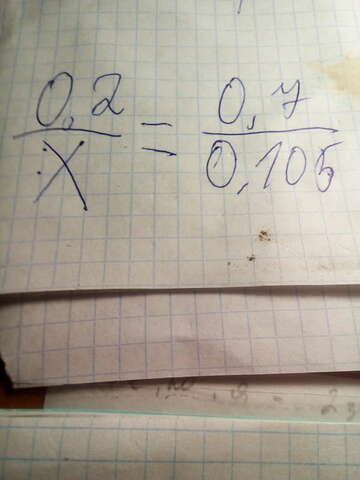 0,2/x = 0,7/0,105